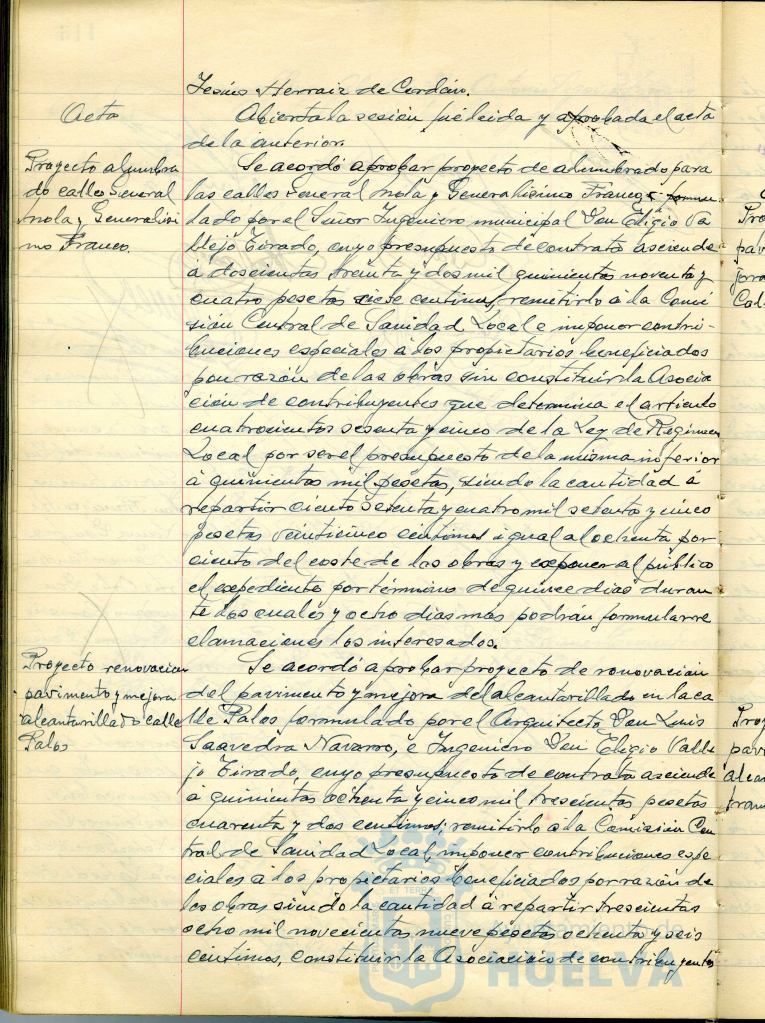 Jesús Herraiz de Cordán.
Acta
Abierta la sesión fué leida y aprobada el acta
de la anterior.
Proyecto alumbra
do calles General
Mola y Generalisi
mo Franco.
Se acordó aprobar proyecto de alumbrado para
las calles General Mola y Generalisimo Franco formu
lado por el Señor Ingeniero municipal Don Eligio Va
llejo Tirado, cuyo presupuesto de contrata asciende
á doscientas treinta y dos mil quinientas noventa y
cuatro pesetas siete centimos, remitirlo á la Comi
sión Central de Sanidad Local e imponer contri-
buciones especiales á los propietarios beneficiados
por razón de las obras sin constituir la Asocia
ción de contribuyentes que determina el articulo
cuatrocientos sesenta y cinco de la Ley de Regimen
Local por ser el presupuesto de la misma inferior
á quinientas mil pesetas, siendo la cantidad á
repartir ciento setenta y cuatro mil setenta y cinco
pesetas veinticinco centimos igual al ochenta por
ciento del coste de las obras y exponer al público
el expediente por término de quince dias duran
te los cuales y ocho dias mas podrán formular re
clamaciones los interesados.
Proyecto renovacion
pavimento y mejora
alcantarillado calle
Palos
Se acordó aprobar proyecto de renovación
del pavimento y mejora del alcantarillado en la ca
lle Palos formulado por el Arquitecto Don Luis
Saavedra Navarro, é Ingeniero Don Eligio Valle
jo Tirado, cuyo presupuesto de contrata asciende
á quinientas ochenta y cinco mil trescientas pesetas
cuarenta y dos centimos; remitirlo á la Comisión Cen
tral de Sanidad Local, imponer contribuciones espe
ciales á los propietarios beneficiados por razón de
las obras siendo la cantidad á repartir trescientas
ocho mil novecientas nueve pesetas ochenta y seis
centimos, constituir la Asociacion de contribuyentes
HUELVA